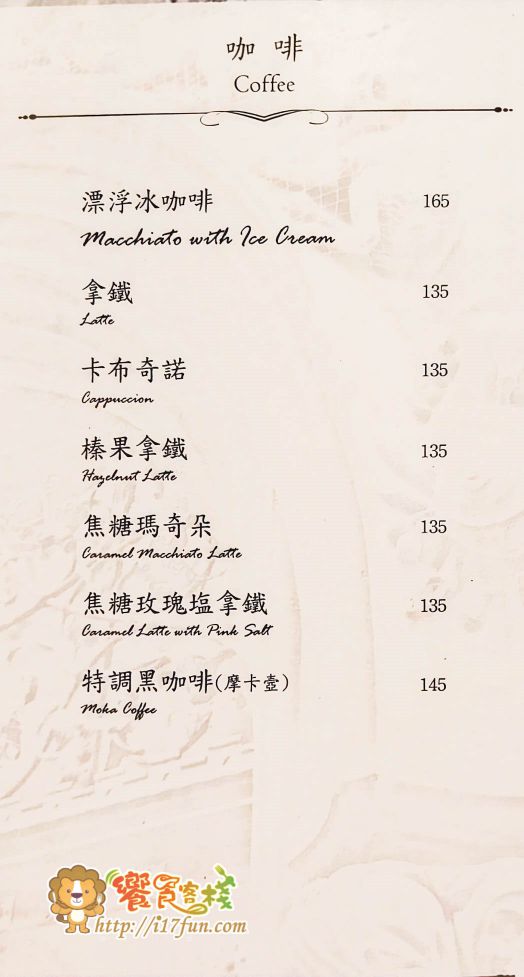 咖啡
Coffee
漂浮冰咖啡 165
Macchiato with Ice Cream
拿鐵 135
Latte
卡布奇諾 135
Cappuccion
榛果拿鐵 135
Hazelnut Latte
焦糖瑪奇朵 135
Caramel Macchiato Latte
焦糖玫瑰塩拿鐵 135
Caramel Latte with Pink Salt
特調黑咖啡(摩卡壼) 145
Moka Coffee
饗食客棧
http://i17fun.com